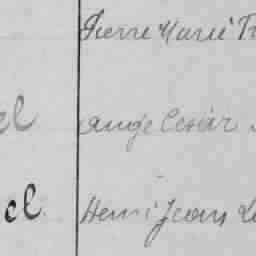 Pierre Marie
el Ange Cesar
el Henri Jean